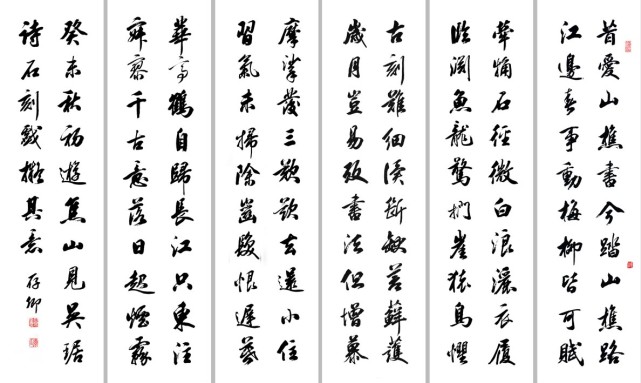 昔愛山樵書今踏山樵路
江邊春事動梅柳皆可賦
犖确石徑微白浪灑衣屨
臨淵魚龍驚捫崖猿鳥懼
古刻難細讀斷缺蒼蘚護
歲月豈易致書法但增慕
摩挲發三歎欲去還小住
習氣未掃除齒髮恨遲暮
華亭鶴自歸長江只東注
寂寥千古意落日起煙霧
癸未秋初遊焦山見吳琚
詩石刻戲擬其意 存卿